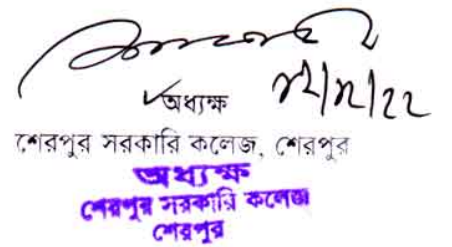 অধ্যক্ষ
শেরপুর সরকারি কলেজ, শেরপুর
অধ্যক্ষ
শেরপুর সরকারি কলেজ
শেরপুর